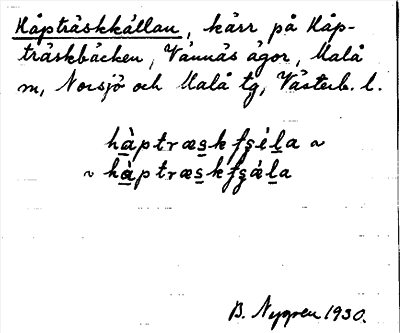 Håpträskkällan, kärr på Håp-
träskbäcken, Vännäs ägor, Malå
m, Norsjö och Malå tg, Västerb. l.
hàptræskfşéla ~
~ hàptræskfşǽla
B. Nygren 1930.